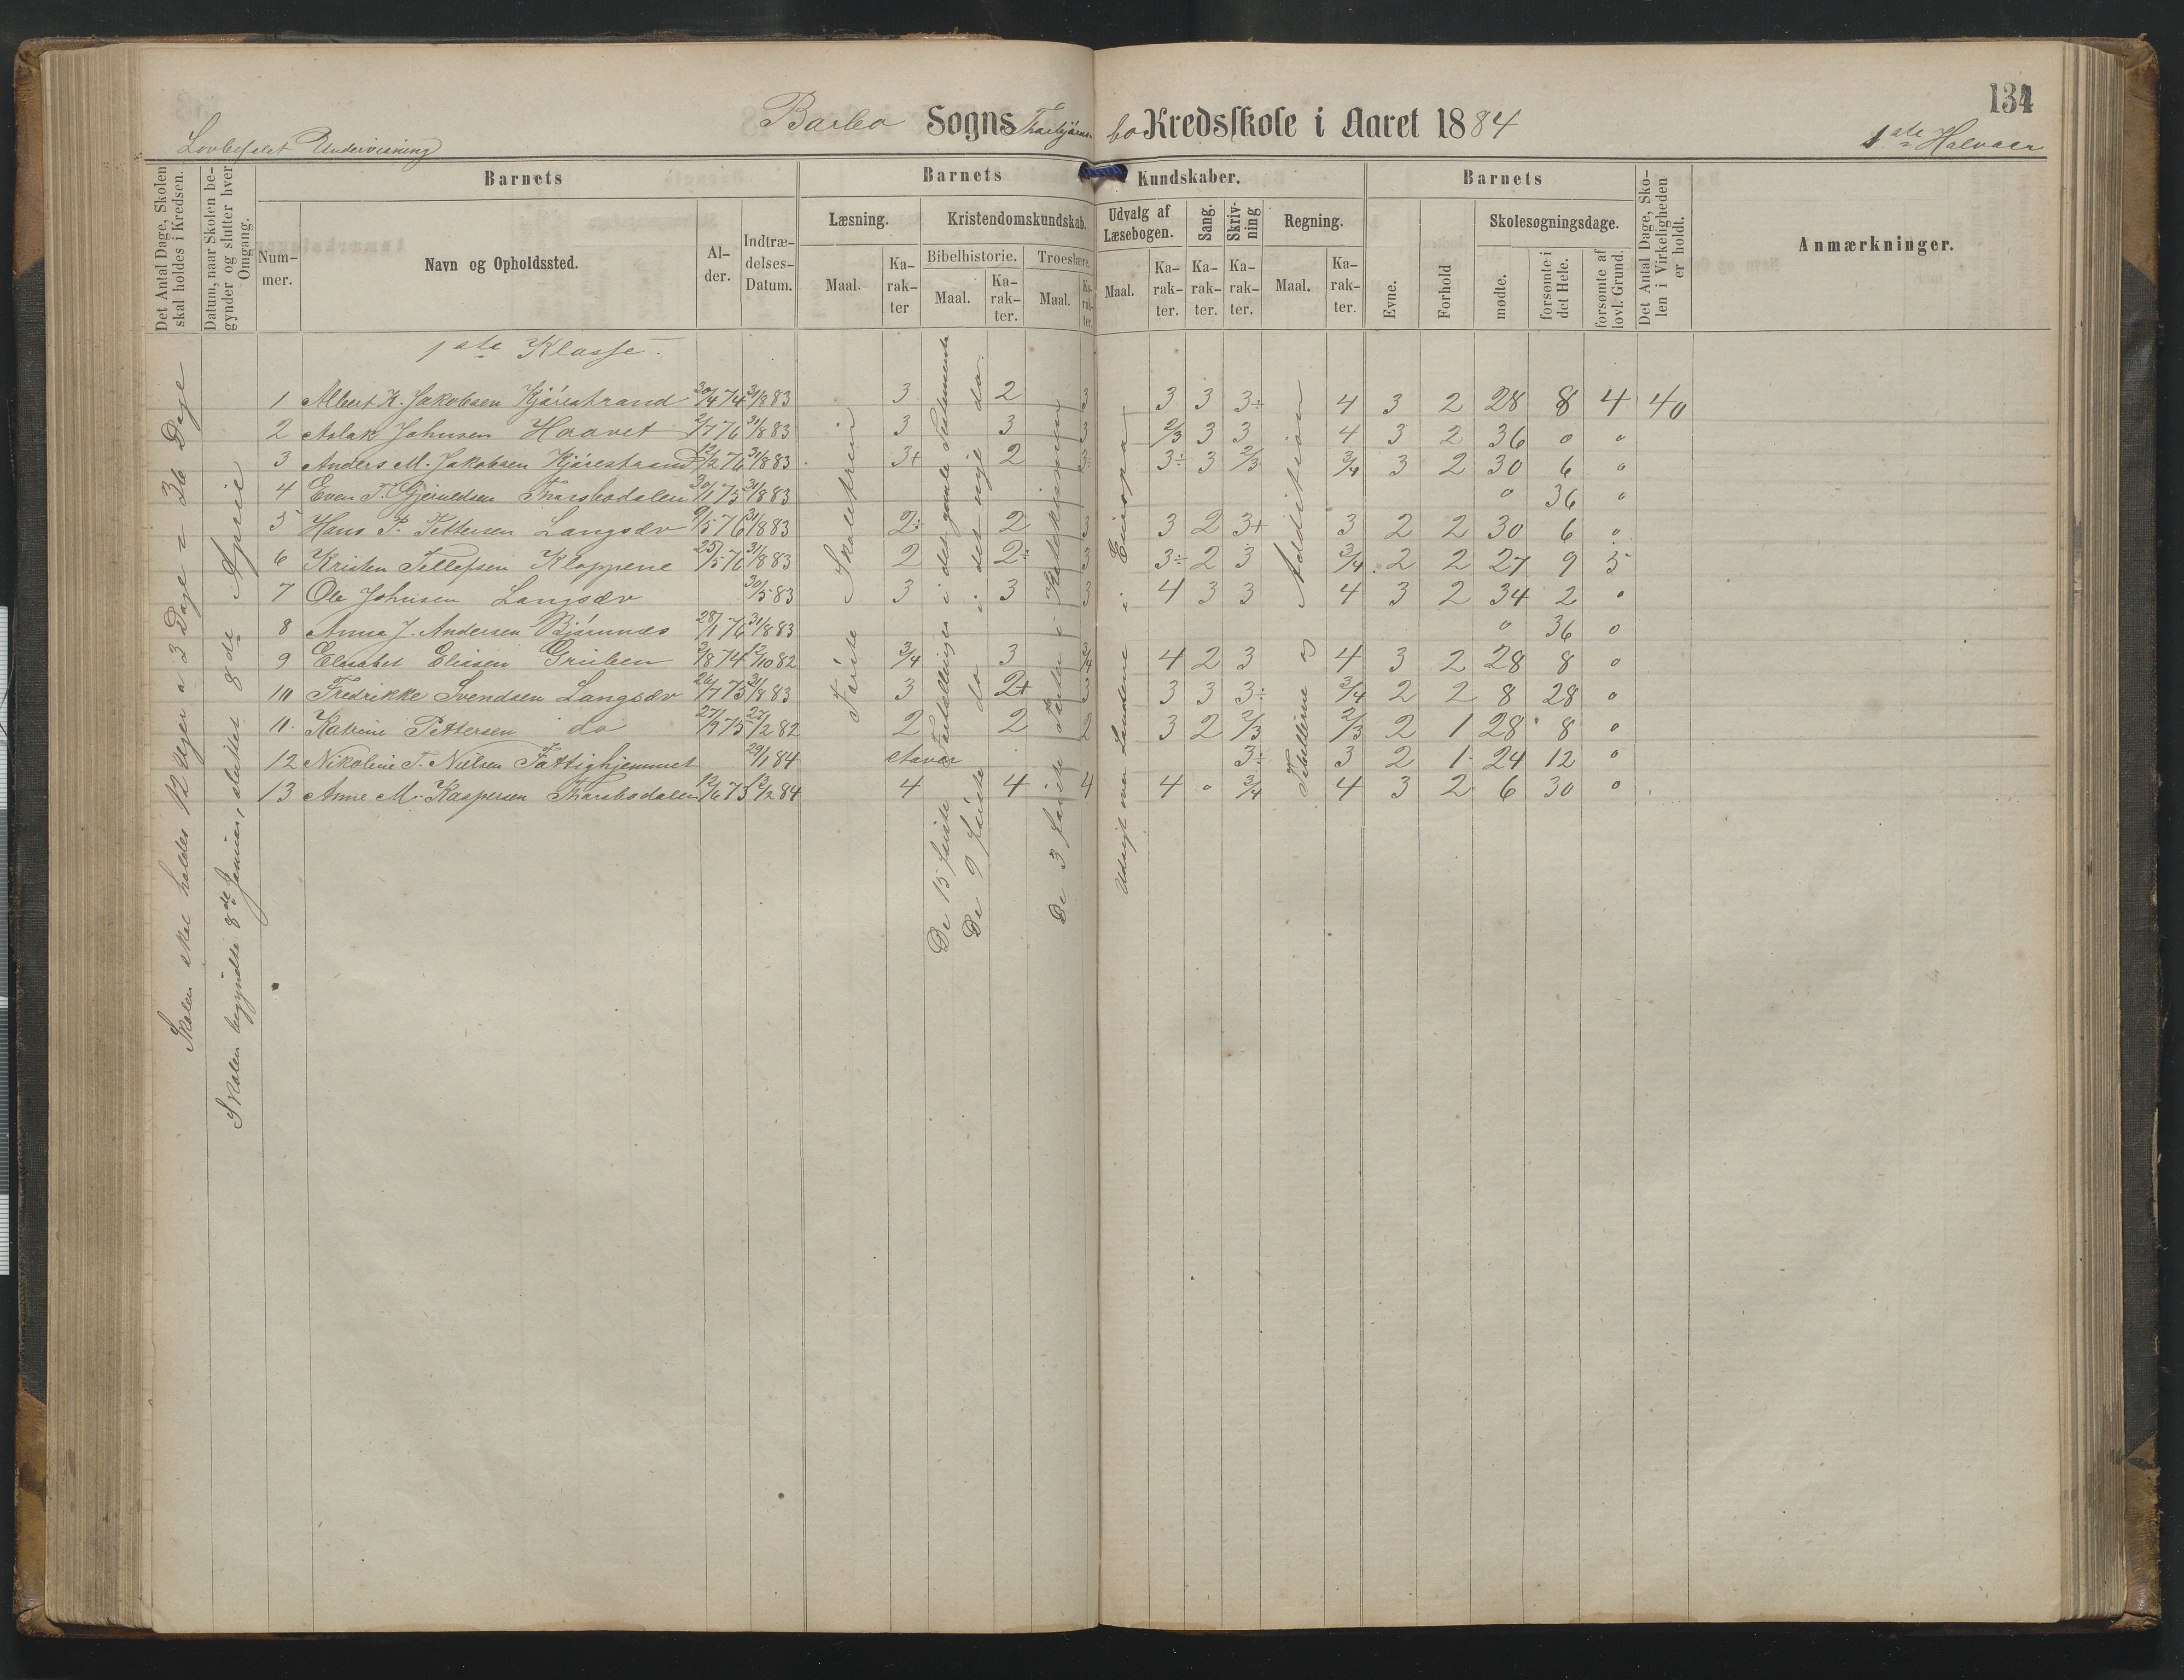 134
Barbo Sogns Thorbjørns bo Kredsskole i Aaret 1884
Lovbefalet Undervisning
1ste Halvaar
Det Antal Dage, Skolen skal holdes i Kredsen.
Datum, naar Skolen begynder og slutter hver Omgang.
Barnets
Nummer.
Navn og Opholdssted.
Alder.
Indtrædelses-Datum.
Barnets Kundskaber.
Læsning.
Maal.
Karakter
Kristendomskundskab.
Bibelhistorie.
Maal.
Karakter.
Troeslære.
Maal.
Karakter.
Udvalg af Læsebogen.
Maal.
Karakter.
Sang.
Karakter.
Skrivning
Karakter.
Regning.
Maal.
Karakter.
Barnets
Evne.
Forhold
Skolesøgningsdage.
mødte.
forsømte i det Hele.
forsømte af lovl. Grund.
Det Antal Dage, Skolen i Virkeligheden er holdt.
Anmærkninger.
Skolen skal holdes 12 Uger a 3 Dage = 36 Dage
Skolen begyndte 8de Januar, sluttet 8de April
1ste Klasse.
1 Albert K. Jakobsen Kjørestrand 30/4 74 31/8 83 3 2 3 3 3 3÷ 4 3 2 28 8 4 40
2 Aslak Johnsen Haavet 2/7 76 31/8 83 3 3 3 2/3 3 3 4 3 2 36 0 0
3 Anders M. Jakobsen Kjørestrand 12/2 76 31/8 83 3+ 2 3÷ 3÷ 3 2/3 3/4 3 2 30 6 0
4 Even T. Gjeruldsen Thorsbodalen 30/1 75 31/8 83 0 36 0
5 Hans P. Pettersen Langsæv 9/5 76 31/8 83 2÷ 2 3 3 2 3+ 3 2 2 30 6 0
6 Kristen Tellefsen Kloppene 25/5 76 31/8 83 2 2÷ 3 3÷ 2 3 3/4 2 2 27 9 5
7 Ole Johnsen Langsæv 30/5 83 3 3 3 4 3 3 4 3 2 34 2 0
8 Anna J. Andersen Bjørnnes 28/1 76 31/8 83 0 36 0
9 Elisabet Eliasen Gruben 3/8 74 12/10 82 3/4 3 3/4 4 2 3 4 3 2 28 8 0
10 Fredrikke Svendsen Langsæv 26/7 75 31/8 83 3 2+ 3 3 3 3÷ 3/4 2 2 8 28 0
11 Katrine Pettersen do 27/9 75 27/2 82 2 2 2 3 2 2/3 2/3 2 1 28 8 0
12 Nikoline T. Nielsen Fattighjemmet 29/1 84 staver 3÷ 3 2 1 24 12 0
13 Anne M. Kaspersen Thorsbodalen 12/6 75 13/2 84 4 4 4 4 0 3/4 4 3 2 6 30 0
Første Skoletrin
De 15 første Fortællinger i det gamle Testamente
De 9 første do i det nye do.
De 3 første Parter i Katekismen
Udsigt over Landene i Europa
Tabellerne og Addition